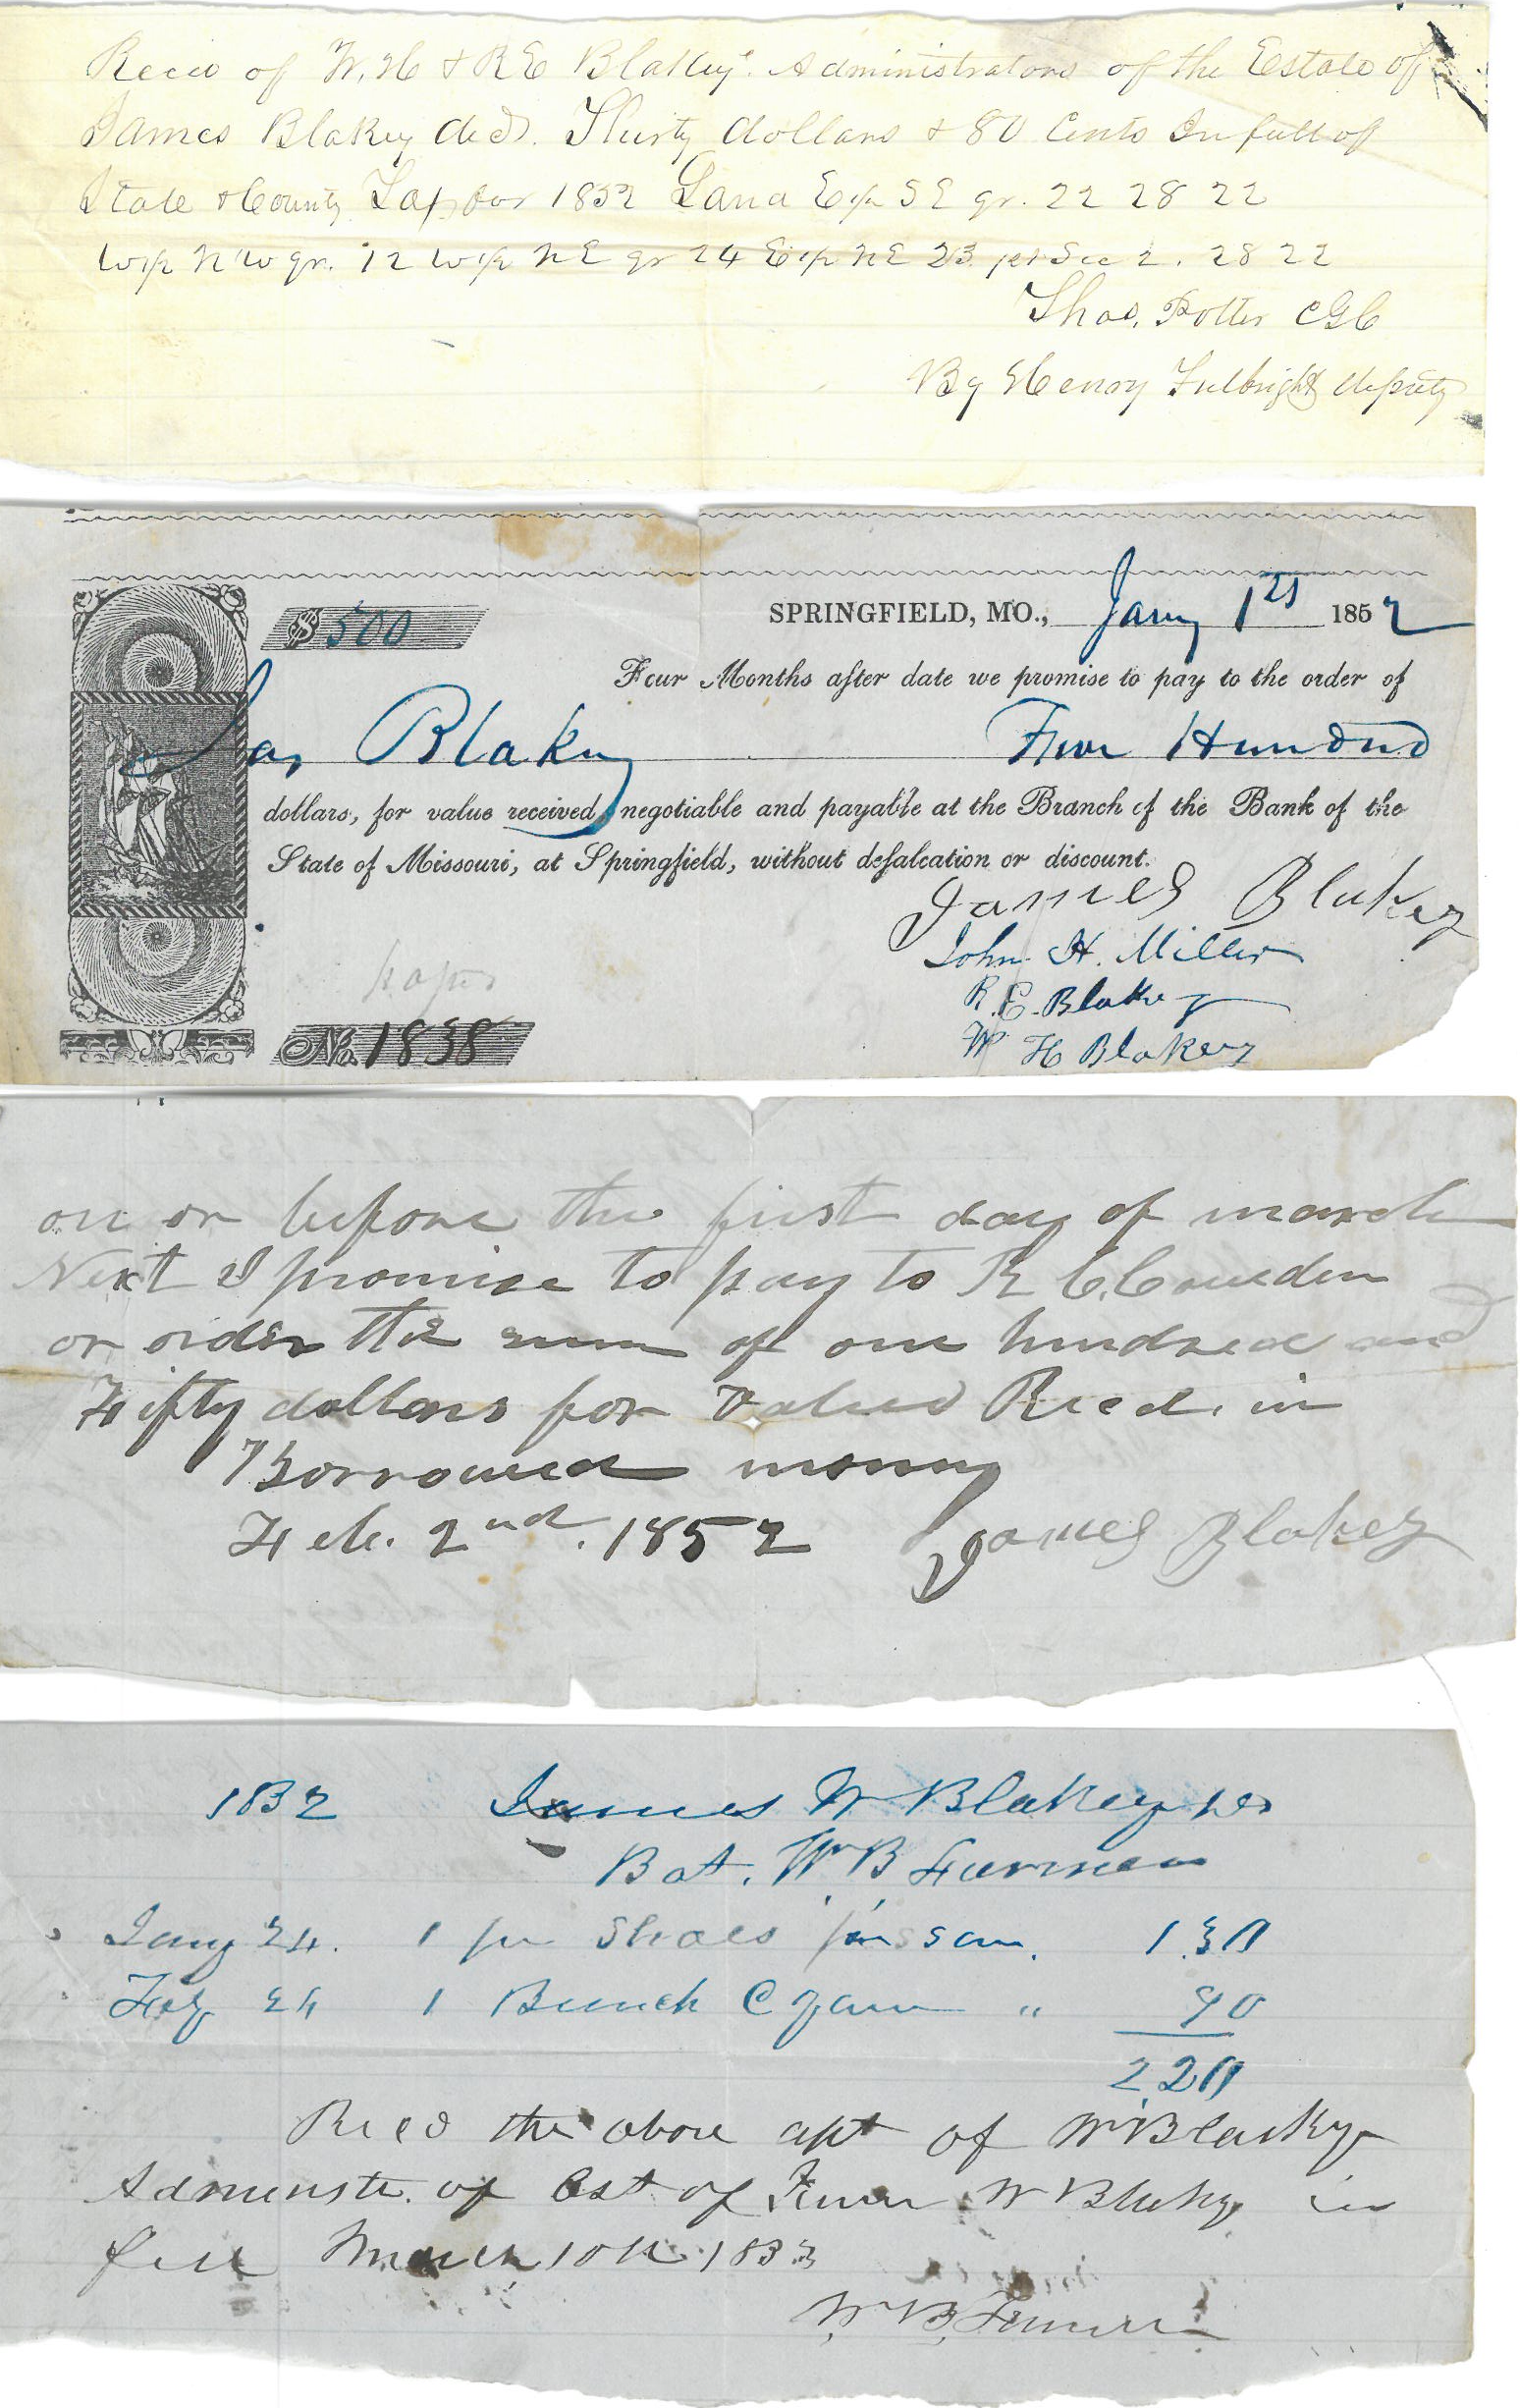 Recd of W. H & R E Blakey Administrators of the Estate of
James Blakey decd. Thirty dollars & 80 Cents In full of
State & County Tax for 1852 Land E½ SE qr. 22 28 22
W½ NW qr. 12 W½ NE qr 24 E½ NE 23 pt Sec 2. 28 22
Thos. Potter CGC
By Henry Fulbright deputy
$ 500
SPRINGFIELD, MO., Jany 1st 1852
Four Months after date we promise to pay to the order of
Jas Blakey Five Hundred
dollars, for value received, negotiable and payable at the Branch of the Bank of the
State of Missouri, at Springfield, without defalcation or discount.
James Blakey
John H. Miller
R. E. Blakey
W H Blakey
No. 1838
on or before the first day of march
Next I promise to pay to R C. Cowden
or order the sum of one hundred and
Fifty dollars for value Recd. in
Borrowed money
Feb. 2nd. 1852 James Blakey
1852 James W Blakey Dr
Bot. Wm B Farmer
Jany 24. 1 pr Shoes pr son. 1.30
Feby 24 1 Bunch C yarn " 90
2.20
Recd the above apt of W Blakey
Adminstr. of Est of James W Blakey in
full March 10th 1853
W. B. Farmer